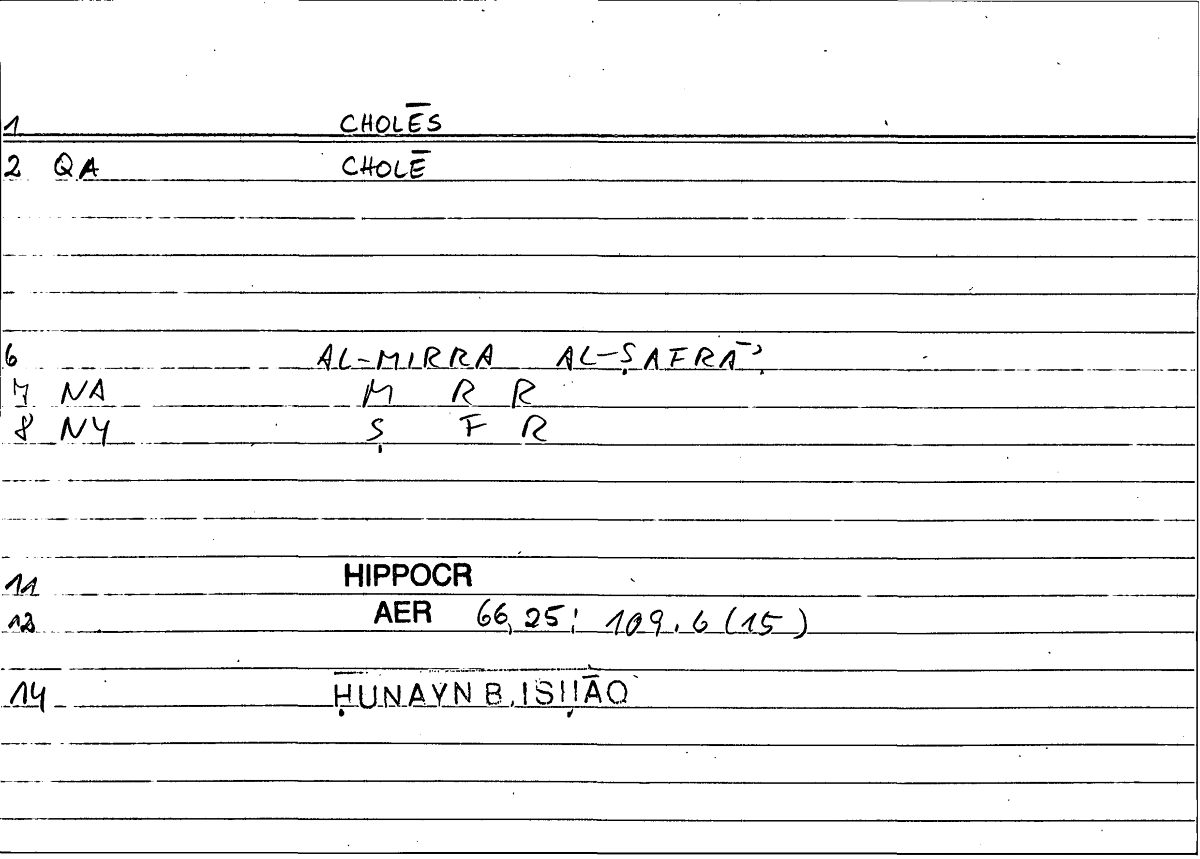 1 CHOLĒS
2 QA CHOLĒ
6 AL-MIRRA AL-ṢAFRĀʾ
7 NA M R R
8 NY Ṣ F R
11 HIPPOCR
12 AER 66,25; 109.6 (15)
14 ḤUNAYN B. ISḤĀQ